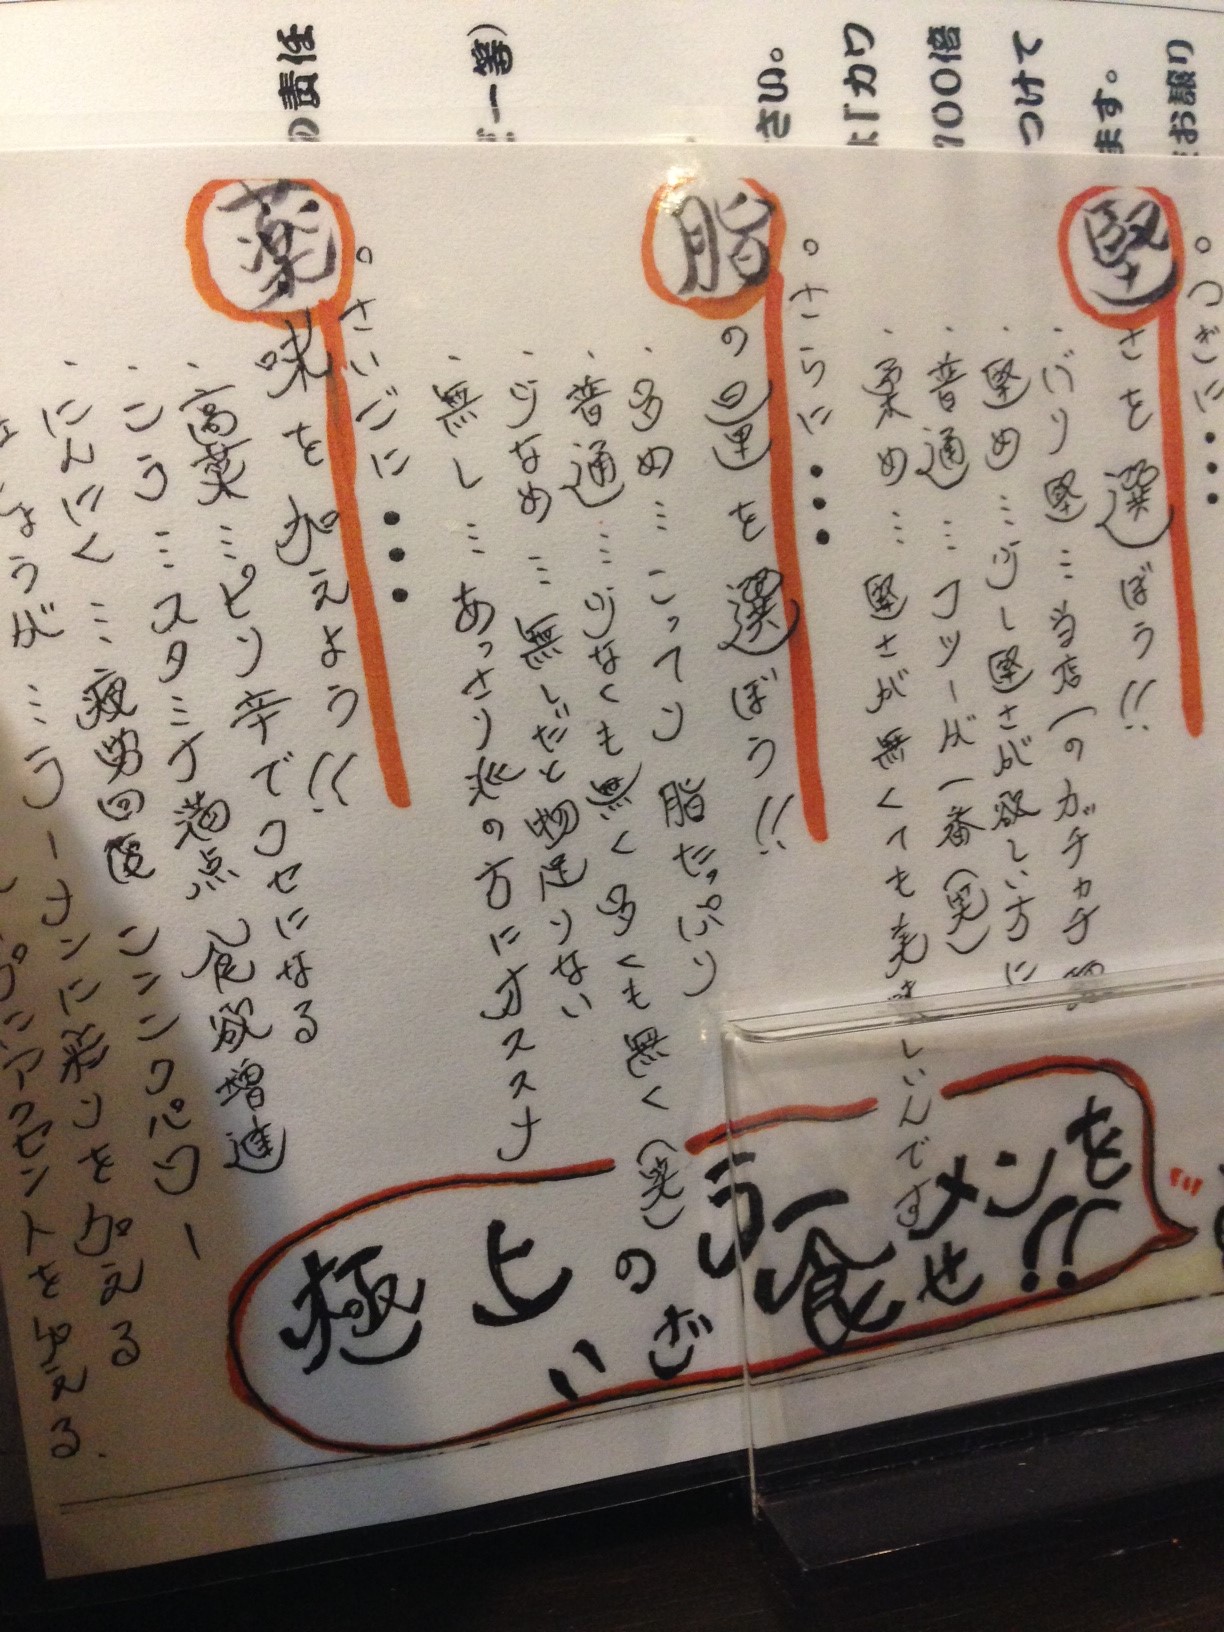 お譲り
ます。
つけて
100倍
「カワ
さい。
一等)
の責任
。つぎに・・・
堅さを選ぼう!!
・バリ堅…当店一のガチガチ
・堅め…少し堅さが欲しい方に
・普通…コッテーが一番(笑)
・柔め…堅さが無くても美味しいんです
。さらに・・・
脂の量を選ぼう!!
・多め…こってり脂たっぷり
・普通…少なくも無く多くも無く(笑)
・少なめ…無しだと物足りない
・無し…あっさり派の方にオススメ
。さいごに・・・
薬味を加えよう!!
・高菜…ピリ辛でクセになる
・こう…スタミナ満点食欲増進
・にんにく…疲労回復ニンニクパワー
しょうが…ラーメンに彩りを加える
プにアクセントを加える.
極上のラーメンを
いざ食せ!!